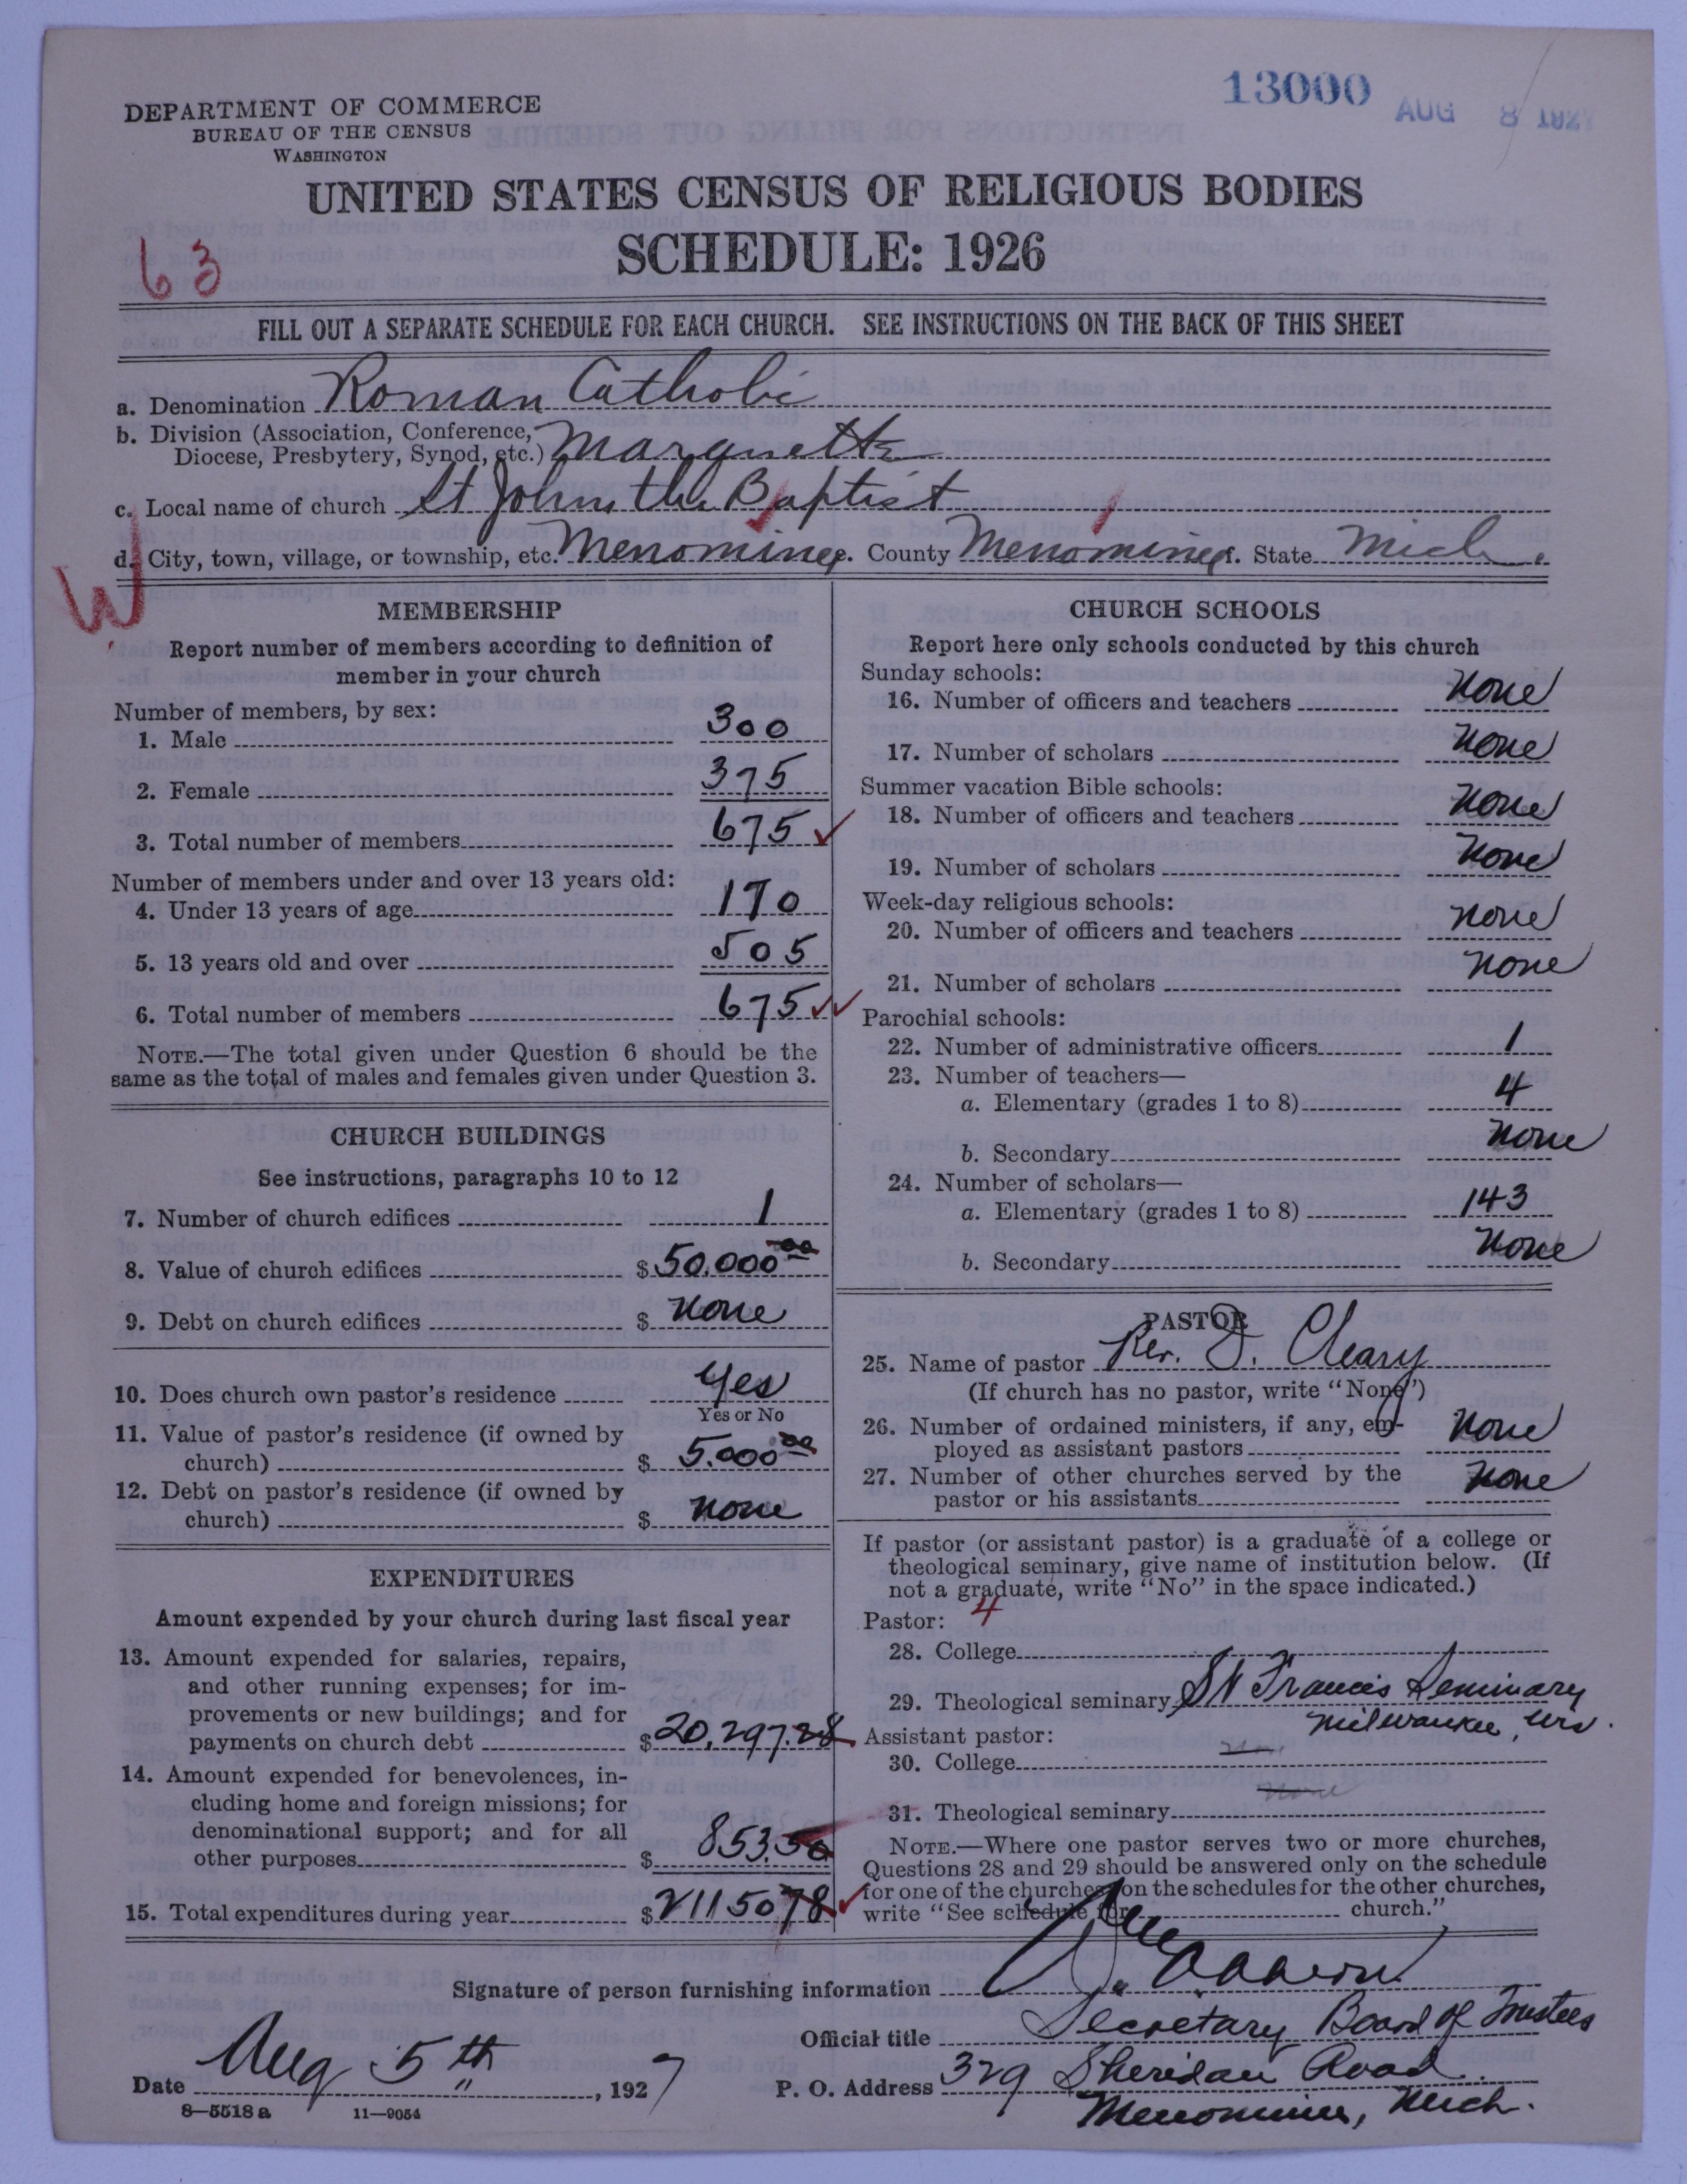 13000 AUG 8 1927
DEPARTMENT OF COMMERCE
BUREAU OF THE CENSUS
WASHINGTON
UNITED STATES CENSUS OF RELIGIOUS BODIES
SCHEDULE: 1926
63
FILL OUT A SEPARATE SCHEDULE FOR EACH CHURCH. SEE INSTRUCTIONS ON THE BACK OF THIS SHEET
a. Denomination Roman Catholic
b. Division (Association, Conference,
Diocese, Presbytery, Synod, etc.) Marquette
c. Local name of church St Johns the Baptist
d. City, town, village, or township, etc. Menominee. County Menominee. State Mich.
W
MEMBERSHIP
Report number of members according to definition of
member in your church
Number of members, by sex:
1. Male 300
2. Female 375
3. Total number of members 675
Number of members under and over 13 years old:
4. Under 13 years of age 170
5. 13 years old and over 505
6. Total number of members 675
NOTE.—The total given under Question 6 should be the
same as the total of males and females given under Question 3.
CHURCH BUILDINGS
See instructions, paragraphs 10 to 12
7. Number of church edifices 1
8. Value of church edifices $ 50.000 00
9. Debt on church edifices $ None
10. Does church own pastor's residence Yes
Yes or No
11. Value of pastor's residence (if owned by
church) $ 5.000 00
12. Debt on pastor's residence (if owned by
church) $ None
EXPENDITURES
Amount expended by your church during last fiscal year
13. Amount expended for salaries, repairs,
and other running expenses; for im-
provements or new buildings; and for
payments on church debt $ 20,297.28
14. Amount expended for benevolences, in-
cluding home and foreign missions; for
denominational support; and for all
other purposes $ 853.50
15. Total expenditures during year $ 2115078
CHURCH SCHOOLS
Report here only schools conducted by this church
Sunday schools:
16. Number of officers and teachers None
17. Number of scholars None
Summer vacation Bible schools:
18. Number of officers and teachers None
19. Number of scholars None
Week-day religious schools:
20. Number of officers and teachers None
21. Number of scholars None
Parochial schools:
22. Number of administrative officers 1
23. Number of teachers—
a. Elementary (grades 1 to 8) 4
b. Secondary None
24. Number of scholars—
a. Elementary (grades 1 to 8) 143
b. Secondary None
PASTOR
25. Name of pastor Rev. D. Cleary
(If church has no pastor, write "None")
26. Number of ordained ministers, if any, em-
ployed as assistant pastors None
27. Number of other churches served by the
pastor or his assistants None
If pastor (or assistant pastor) is a graduate of a college or
theological seminary, give name of institution below. (If
not a graduate, write "No" in the space indicated.)
Pastor: 4
28. College
29. Theological seminary St Francis Seminary
Milwaukee, Wis.
Assistant pastor:
30. College
31. Theological seminary None
NOTE.—Where one pastor serves two or more churches,
Questions 28 and 29 should be answered only on the schedule
for one of the churches; on the schedules for the other churches,
write "See schedule for church."
Signature of person furnishing information
Official title Secretary Board of Trustees
Date Aug 5th, 1927 P. O. Address 329 Sheridan Road
Menominee, Mich.
8—5518 a 11—9054